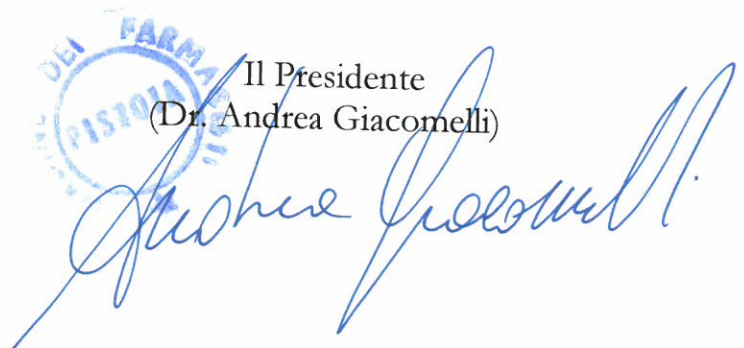 DEI FARMACISTI
PISTOIA
Il Presidente
(Dr. Andrea Giacomelli)
Andrea Giacomelli